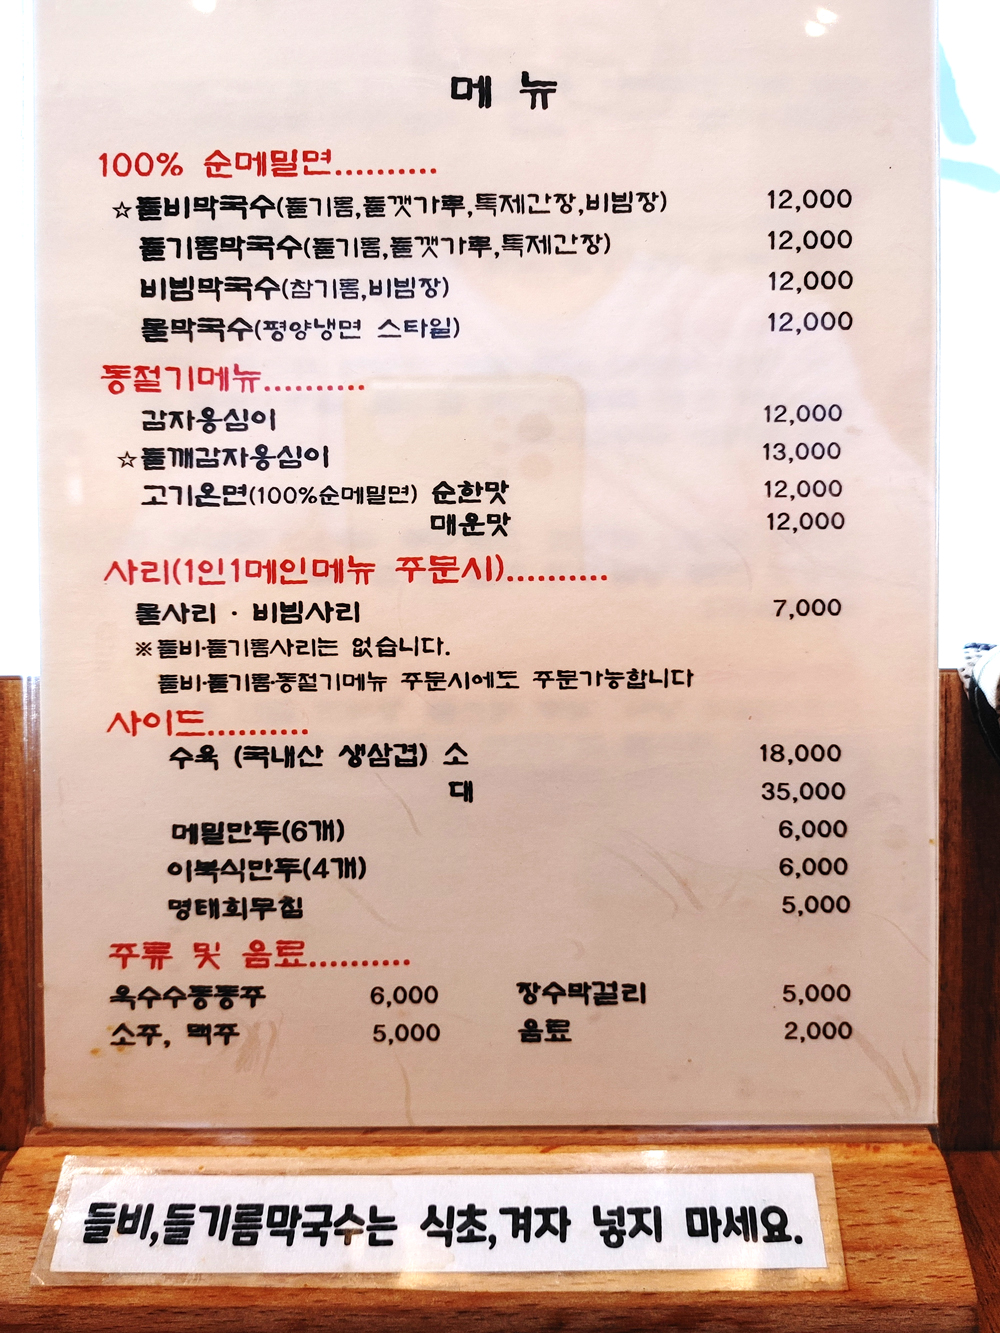 메 뉴
100% 순메밀면..........
☆들비막국수(들기름,들깻가루,특제간장,비빔장) 12,000
들기름막국수(들기름,들깻가루,특제간장) 12,000
비빔막국수(참기름,비빔장) 12,000
물막국수(평양냉면 스타일) 12,000
동절기메뉴..........
감자옹심이 12,000
☆들깨감자옹심이 13,000
고기온면(100%순메밀면) 순한맛 12,000
매운맛 12,000
사리(1인1메인메뉴 주문시)..........
물사리 · 비빔사리 7,000
※들비·들기름사리는 없습니다.
들비·들기름·동절기메뉴 주문시에도 주문가능합니다
사이드..........
수육 (국내산 생삼겹) 소 18,000
대 35,000
메밀만두(6개) 6,000
이북식만두(4개) 6,000
명태회무침 5,000
주류 및 음료..........
옥수수동동주 6,000 장수막걸리 5,000
소주, 맥주 5,000 음료 2,000
들비,들기름막국수는 식초,겨자 넣지 마세요.